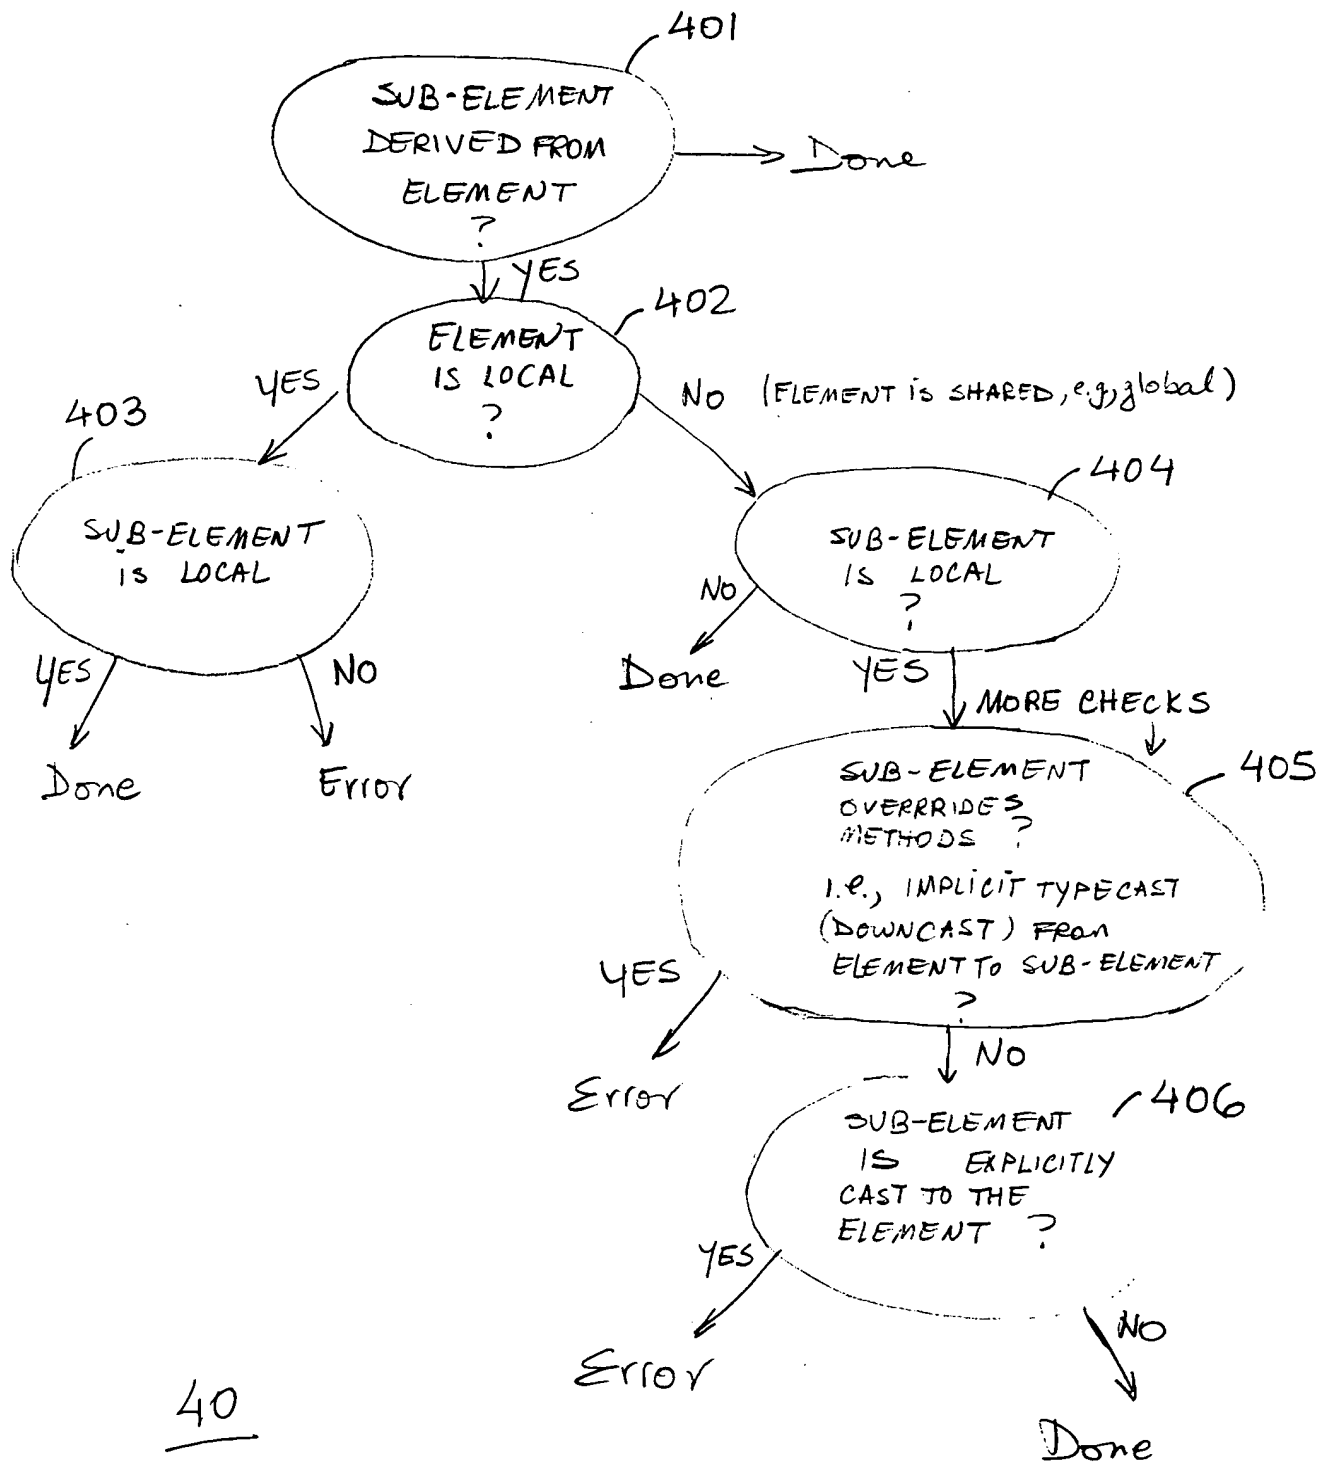 401
SUB-ELEMENT
DERIVED FROM
ELEMENT
?
Done
YES
402
ELEMENT
IS LOCAL
?
YES
NO (ELEMENT is SHARED, e.g, global)
403
SUB-ELEMENT
is LOCAL
YES
NO
Done
Error
404
SUB-ELEMENT
IS LOCAL
?
NO
Done
YES
MORE CHECKS
405
SUB-ELEMENT
OVERRRIDES
METHODS ?
i.e., IMPLICIT TYPECAST
(DOWNCAST) FROM
ELEMENT TO SUB-ELEMENT
?
YES
Error
NO
406
SUB-ELEMENT
IS EXPLICITLY
CAST TO THE
ELEMENT ?
YES
Error
NO
Done
40